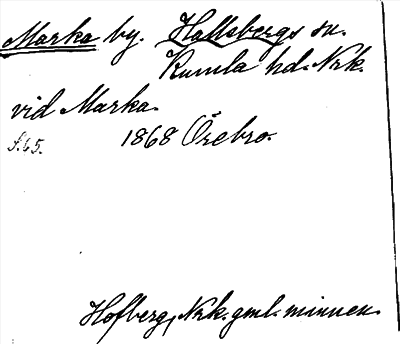 Marka by. Hallsbergs sn.
Kumla hd. Nrk.
vid Marka.
S. 65. 1868 Örebro.
Hofberg, Nrk. gml. minnen.